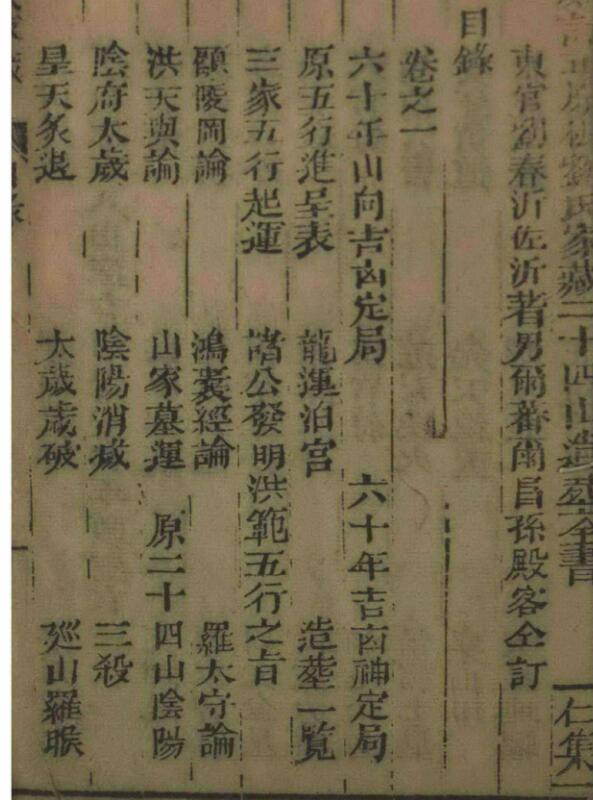 原板劉氏家藏二十四山造塟全書 仁集
東官劉春沂佐沂著男爾蕃爾昌孫殿客仝訂
目錄
卷之一
六十年山向吉凶定局 六十年吉凶神定局
原五行進呈表 龍運泊宮 造塟一覽
三家五行起運 諸公發明洪範五行之旨
顧陵岡論 鴻囊經論 羅太守論
洪天與論 山家墓運 原二十四山陰陽
陰府太歲 陰陽消滅 三殺
星天炙退 太歲歲破 廵山羅㬋
目錄